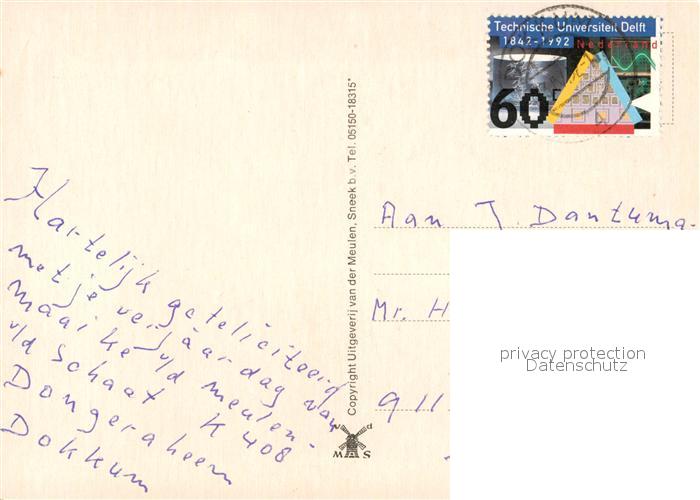 Technische Universiteit Delft
1842-1992 Nederland
60
Hartelijk gefeliciteerd
met je verjaardag van
maaike v/d meulen-
v/d Schaaf K 408
Dongeraheem
Dokkum
Copyright Uitgeverij van der Meulen, Sneek b.v. Tel. 05150-18315*
v d
M S
Aan J. Dantuma-
Mr. H
911
privacy protection
Datenschutz